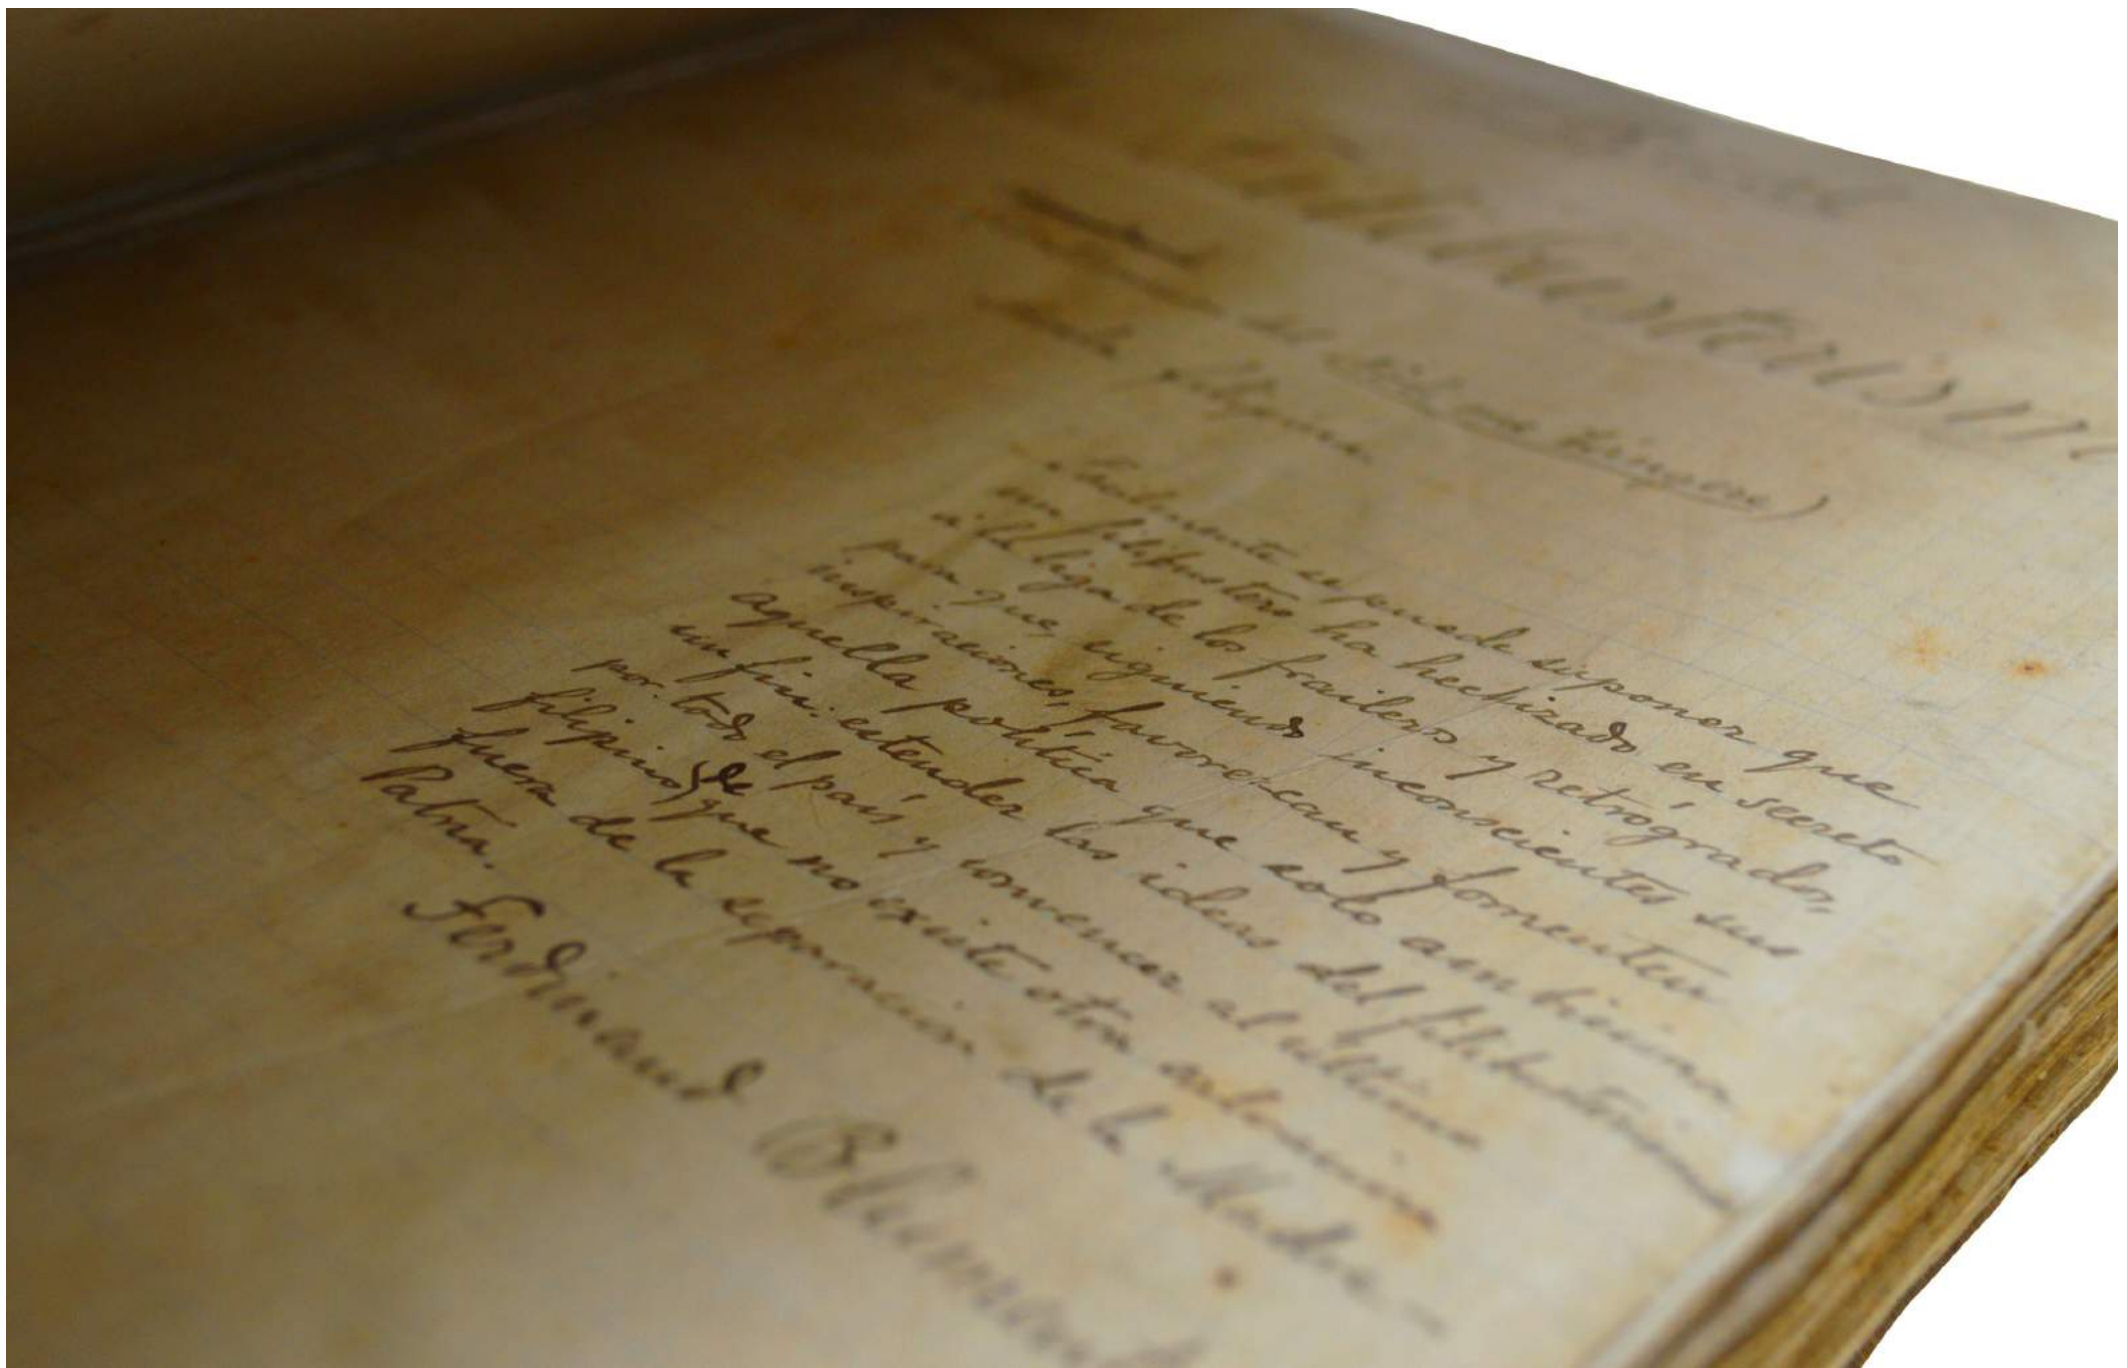 filibusterism
del Noli me tángere)
novela filipina
Facilmente se puede suponer que
un filibustero ha hechizado en secreto
á la liga de los fraileros y retrógrados,
para que, siguiendo inconscientes sus
inspiraciones, favorezcan y fomenten
aquella política que solo ambiciona
un fin: estender las ideas del filibusterismo
por todo el país y convencer al último
filipino de que no existe otra salvacion
fuera de la separacion de la Madre-
Patria.
Ferdinand Blument